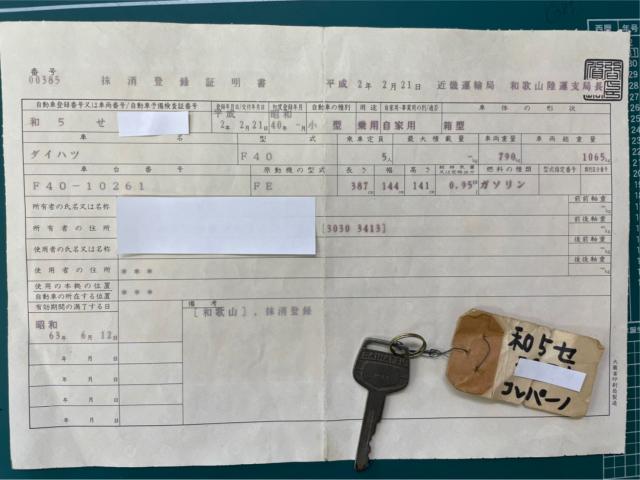 番号
00385 抹消登録証明書 平成 2年 2月21日 近畿運輸局 和歌山陸運支局長
自動車登録番号又は車両番号/自動車予備検査証番号 登録年月日/交付年月日 初度登録年月 自動車の種別 用途 自家用・事業用の別/適否 車体の形状
和5せ 平成 2年 2月21日 昭和 40年 -月 小型 乗用 自家用 箱型
車名 型式 乗車定員 最大積載量 車両重量 車両総重量
ダイハツ F40 5人 -kg 790kg 1065kg
車台番号 原動機の型式 長さ 幅 高さ 総排気量又は定格出力 燃料の種類 型式指定番号 類別区分番号
F40-10261 FE 387 144 141 0.95 ガソリン
所有者の氏名又は名称 前前軸重
所有者の住所 [3030 3413] 前後軸重
使用者の氏名又は名称 後前軸重
使用者の住所 *** 後後軸重
使用の本拠の位置
自動車の所在する位置 ***
有効期間の満了する日 備考
昭和 [和歌山],抹消登録
63年 6月12日
年 月 日
年 月 日
年 月 日
年 月 日
和5セ
コンパーノ
大蔵省印刷局製造
西暦 年号